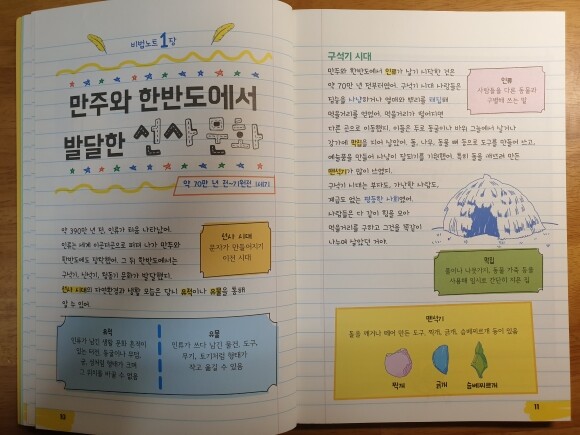 비법노트 1장
만주와 한반도에서
발달한 선사 문화
약 70만 년 전~기원전 108년
약 390만 년 전, 인류가 처음 나타났어.
인류는 세계 이곳저곳으로 퍼져 나가 만주와
한반도에도 정착했어. 그 뒤 한반도에서는
구석기, 신석기, 청동기 문화가 발전했지.
선사 시대의 자연환경과 생활 모습은 당시 유적이나 유물을 통해
알 수 있어.
선사 시대
문자가 만들어지기
이전 시대
유적
인류가 남긴 생활 문화 흔적이
있는 터전. 동굴이나 무덤,
궁, 성처럼 형태가 크며
그 위치를 바꿀 수 없음
유물
인류가 쓰다 남긴 물건. 도구,
무기, 토기처럼 형태가
작고 옮길 수 있음
10
구석기 시대
만주와 한반도에서 인류가 살기 시작한 것은
약 70만 년 전부터였어. 구석기 시대 사람들은
짐승을 사냥하거나 열매와 뿌리를 채집해
먹을거리를 얻었어. 먹을거리가 떨어지면
다른 곳으로 이동했지. 이들은 주로 동굴이나 바위 그늘에서 살거나
강가에 막집을 지어 살았어. 돌, 나무, 동물 뼈 등으로 도구를 만들어 쓰고,
예술품을 만들어 사냥이 잘되기를 기원했어. 특히 돌을 깨뜨려 만든
뗀석기가 많이 쓰였다.
구석기 시대는 부자도, 가난한 사람도,
계급도 없는 평등한 사회였어.
사람들은 다 같이 힘을 모아
먹을거리를 구하고 그것을 똑같이
나누며 살았던 거야.
인류
사람들을 다른 동물과
구별해 쓰는 말
막집
풀이나 나뭇가지, 동물 가죽 등을
사용해 임시로 간단히 지은 집
뗀석기
돌을 깨거나 떼어 만든 도구. 찍개, 긁개, 슴베찌르개 등이 있음
찍개
긁개
슴베찌르개
11